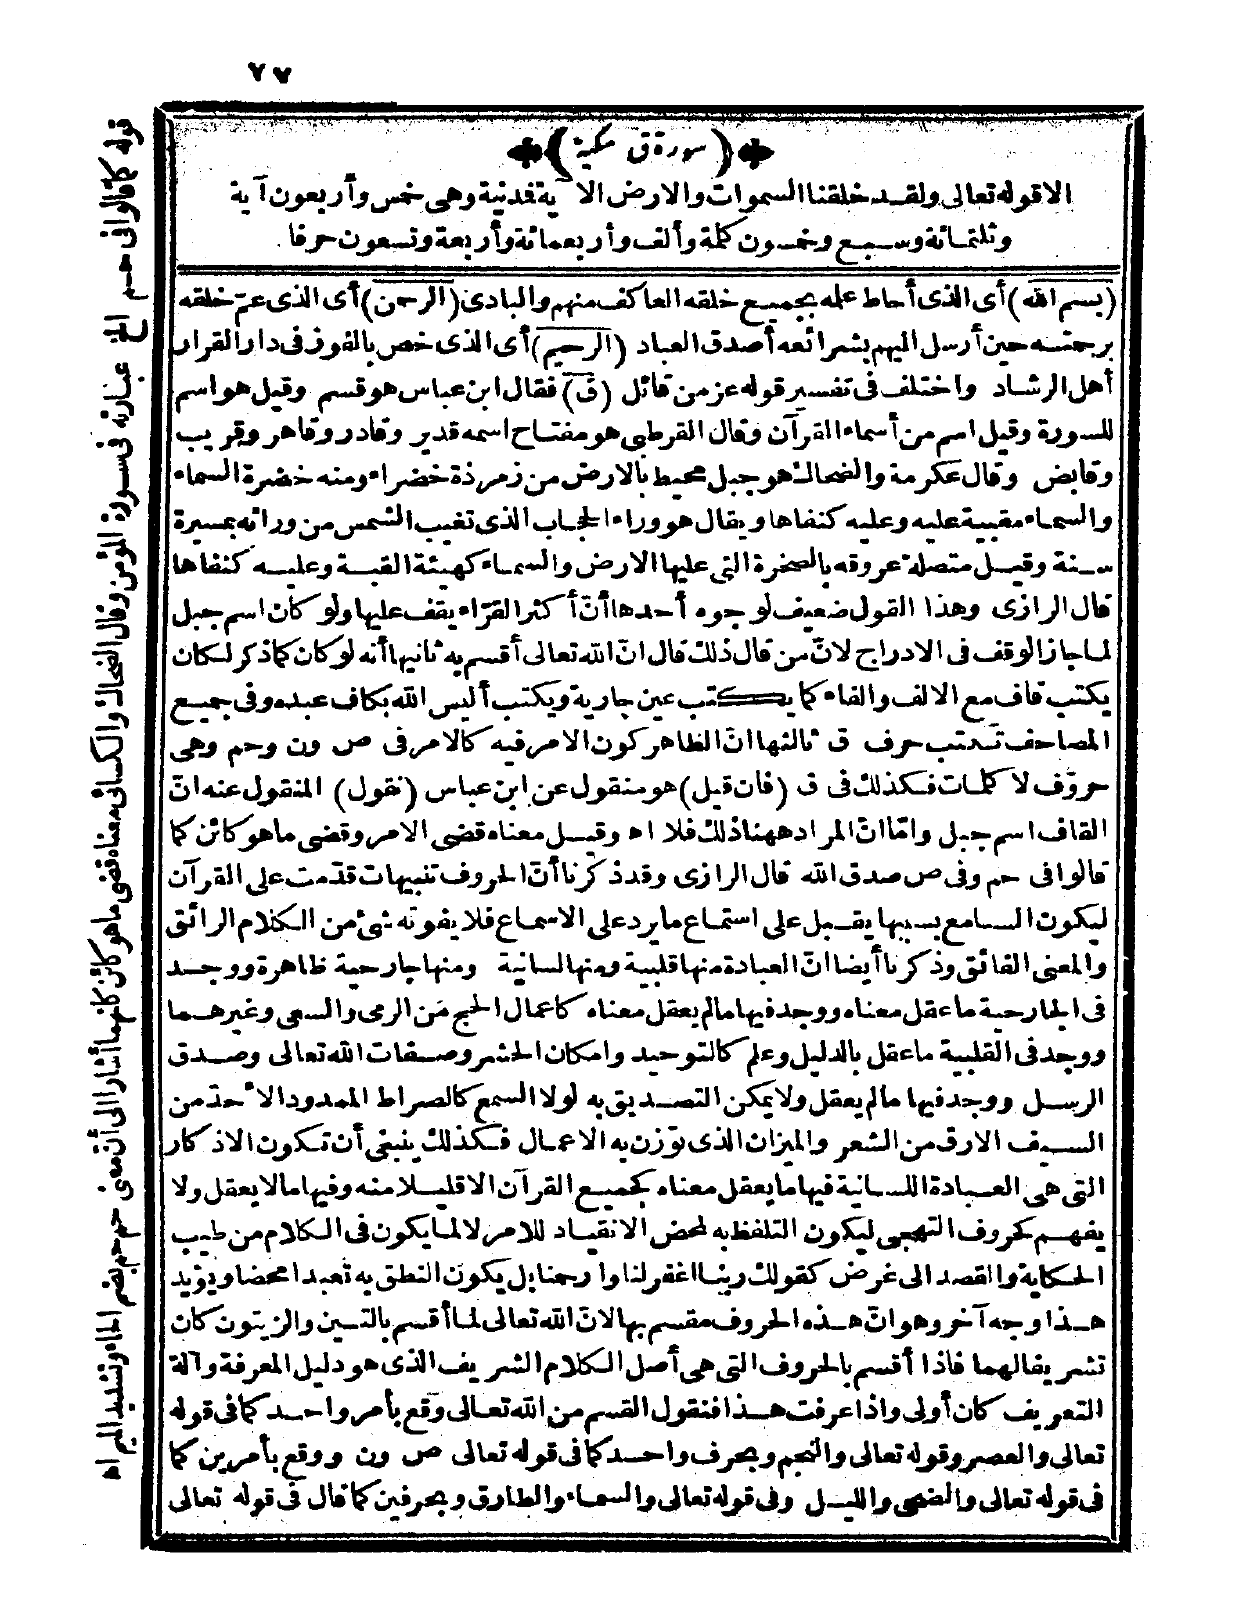 ٧٧
(سورة ق مكية)
الا قوله تعالى ولقد خلقنا السموات والارض الآية فدنية وهى خمس وأربعون آية
وثلثمائة وسبع وخمسون كلمة وألف وأربعمائة وأربعة وتسعون حرفا.
(بسم الله) أى الذى أحاط علمه بجميع خلقه العاكف منهم والبادى (الرحمن) أى الذى عمّ خلقه
برحمته حين أرسل اليهم بشرائعه أصدق العباد (الرحيم) أى الذى خص بالفوز فى دار القرار
أهل الرشاد واختلف فى تفسير قوله عز من قائل (ق) فقال ابن عباس هو قسم وقيل هو اسم
للسورة وقيل اسم من أسماء القرآن وقال القرطبى هو مفتاح اسمه قدير وقادر وقاهر وقريب
وقابض وقال عكرمة والضحاك هو جبل محيط بالارض من زمرذة خضراء ومنه خضرة السماء
والسماء مقببة عليه وعليه كنفاها ويقال هو وراء الحجاب الذى تغيب الشمس من ورائه بمسيرة
سنة وقيل متصلة عروقه بالصخرة التى عليها الارض والسماء كهيئة القبة وعليه كنفاها
قال الرازى وهذا القول ضعيف لوجوه أحدها أنّ أكثر القرّاء يقف عليها ولو كان اسم جبل
لما جاز الوقف فى الادراج لانّ من قال ذلك قال انّ الله تعالى أقسم به ثانيها أنه لو كان كما ذكر لكان
يكتب قاف مع الالف والفاء كما يكتب عين جارية ويكتب أليس الله بكاف عبده وفى جميع
المصاحف تكتب حرف ق ثالثها انّ الظاهر كون الامر فيه كالامر فى ص ون وحم وهى
حروف لا كلمات فكذلك فى ق (فان قيل) هو منقول عن ابن عباس (نقول) المنقول عنه انّ
القاف اسم جبل وامّا انّ المراد ههنا ذلك فلا اه وقيل معناه قضى الامر وقضى ما هو كائن كما
قالوا فى حم وفى ص صدق الله قال الرازى وقد ذكرنا أنّ الحروف تنبيهات قدّمت على القرآن
ليكون السامع بسببها يقبل على استماع ما يرد على الاسماع فلا يفوته شئ من الكلام الرائق
والمعنى الفائق وذكرنا أيضا انّ العبادة منها قلبية ومنها لسانية ومنها جارحية ظاهرة ووجد
فى الجارحية ما عقل معناه ووجد فيها ما لم يعقل معناه كاعمال الحج من الرمى والسعى وغيرهما
ووجد فى القلبية ما عقل بالدليل وعلم كالتوحيد وامكان الحشر وصفات الله تعالى وصدق
الرسل ووجد فيها ما لم يعقل ولا يمكن التصديق به لولا السمع كالصراط الممدود الاحدّ من
السيف الارق من الشعر والميزان الذى توزن به الاعمال فكذلك ينبغى أن تكون الاذكار
التى هى العبادة اللسانية فيها ما يعقل معناه كجميع القرآن الا قليلا منه وفيها ما لا يعقل ولا
يفهم كحروف التهجى ليكون التلفظ به لمحض الانقياد للامر لا لما يكون فى الكلام من طيب
الحكاية والقصد الى غرض كقولك ربنا اغفر لنا وارحمنا بل يكون النطق به تعبدا محضا ويؤيد
هذا وجه آخر وهو انّ هذه الحروف مقسم بها لانّ الله تعالى لما أقسم بالتين والزيتون كان
تشريفا لهما فاذا أقسم بالحروف التى هى أصل الكلام الشريف الذى هو دليل المعرفة وآلة
التعريف كان أولى واذا عرفت هذا فنقول القسم من الله تعالى وقع بأمر واحد كما فى قوله
تعالى والعصر وقوله تعالى والنجم وبحرف واحد كما فى قوله تعالى ص ون ووقع بأمرين كما
فى قوله تعالى والضحى والليل وفى قوله تعالى والسماء والطارق وبحرفين كما قال فى قوله تعالى
قوله كما قالوا فى حم الخ عبارته فى سورة المؤمن وقال الضحاك والكسائى معناه قضى ما هو كائن كأنهما أشارا الى أن معنى حم حم بضم الحاء وتشديد الميم اه